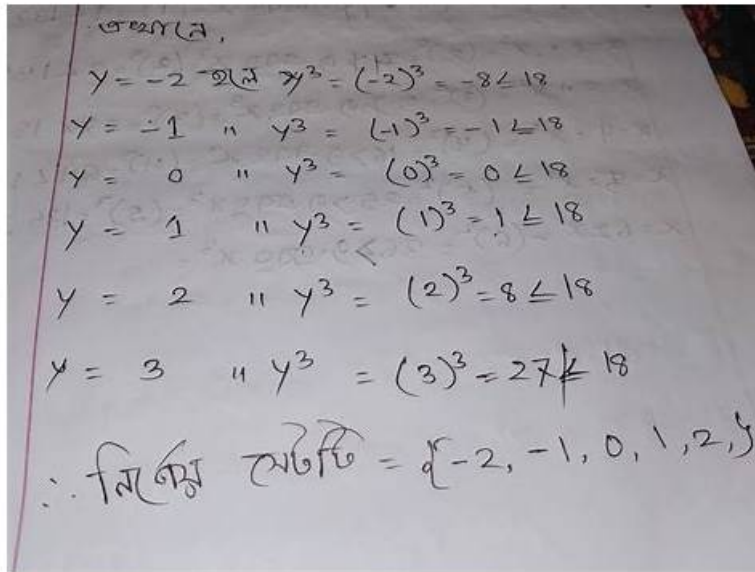 এখানে,
y = -2 হলে y³ = (-2)³ = -8 ≤ 18
y = -1 " y³ = (-1)³ = -1 ≤ 18
y = 0 " y³ = (0)³ = 0 ≤ 18
y = 1 " y³ = (1)³ = 1 ≤ 18
y = 2 " y³ = (2)³ = 8 ≤ 18
y = 3 " y³ = (3)³ = 27 ≰ 18
∴ নির্ণেয় সেটটি = {-2, -1, 0, 1, 2,}